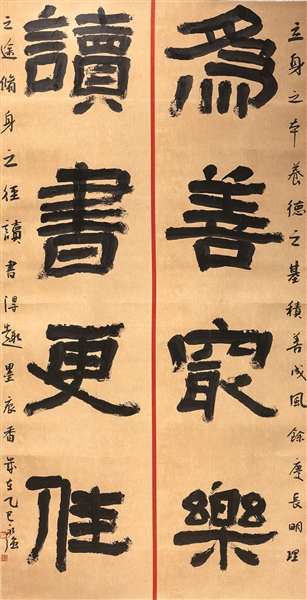 為善最樂
讀書更佳
立身之本養德之基積善成風餘慶長明理
之途脩身之徑讀書得趣墨辰香歲在乙巳